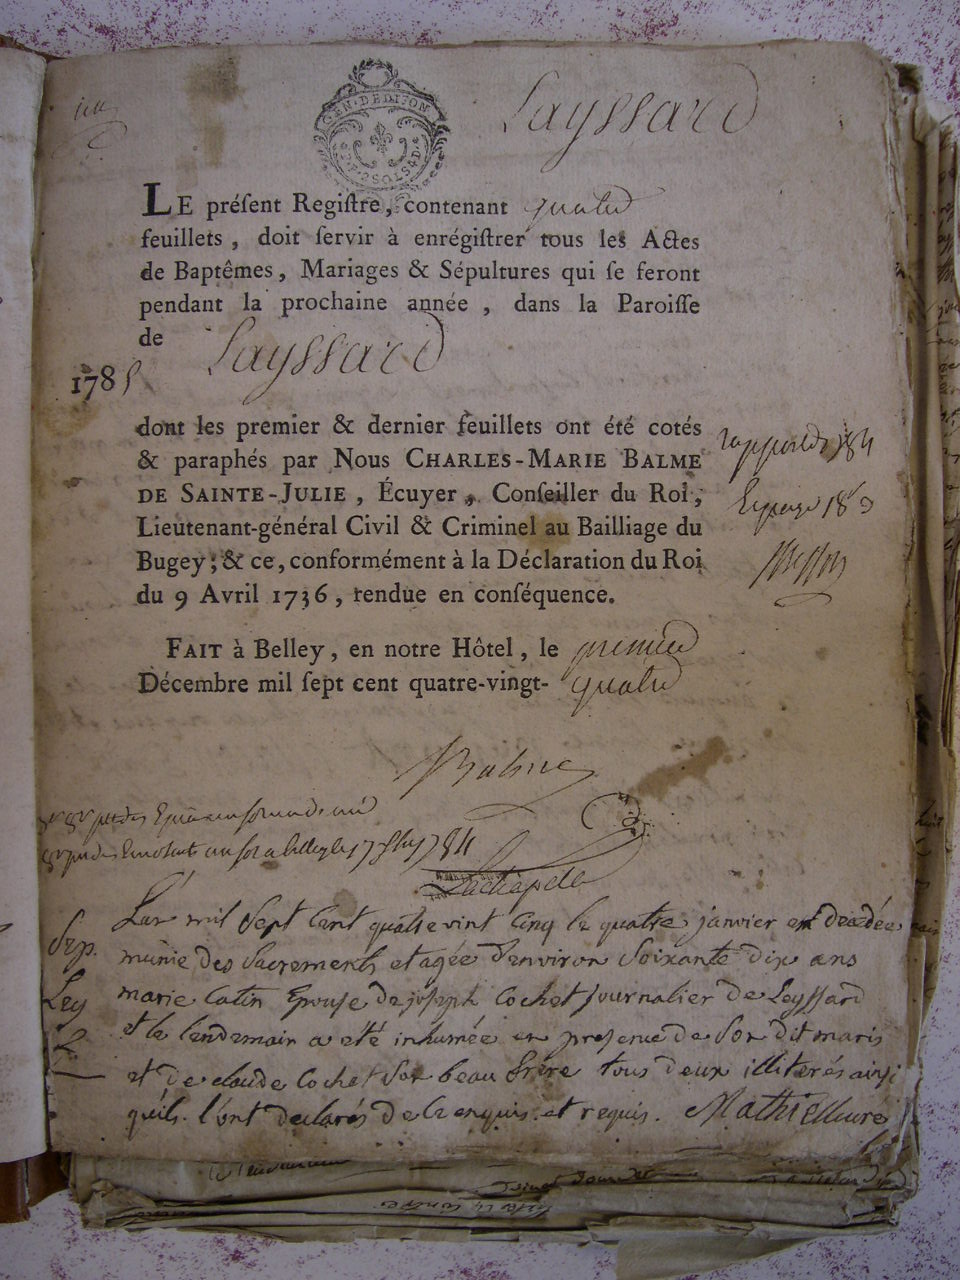 GEN·DE DIJON
2 SOLS 4 D
Layssard
LE préſent Regiſtre, contenant quatre
feuillets, doit ſervir à enrégiſtrer tous les Actes
de Baptêmes, Mariages & Sépultures qui ſe feront
pendant la prochaine année, dans la Paroiſſe
de Layssard
1785
dont les premier & dernier feuillets ont été cotés
& paraphés par Nous CHARLES-MARIE BALME
DE SAINTE-JULIE, Écuyer, Conſeiller du Roi,
Lieutenant-général Civil & Criminel au Bailliage du
Bugey; & ce, conformément à la Déclaration du Roi
du 9 Avril 1736, rendue en conſéquence.
FAIT à Belley, en notre Hôtel, le premier
Décembre mil ſept cent quatre-vingt-quatre
Balme
Lachapele
Sep.
Ley
L'an mil Sept Cent quatre vint Cinq le quatre janvier est decedée
munie des Sacrements et agée d'environ Soixante dix ans
marie Catin Epouse de joseph Cochet journalier de Leyssard
et le lendemain a eté inhumée en presence de Son dit maris
et de claude Cochet Son beau frère tous deux illiterés ainsi
qu'ils l'ont declarés de ce enquis et requis. Mathieu curé